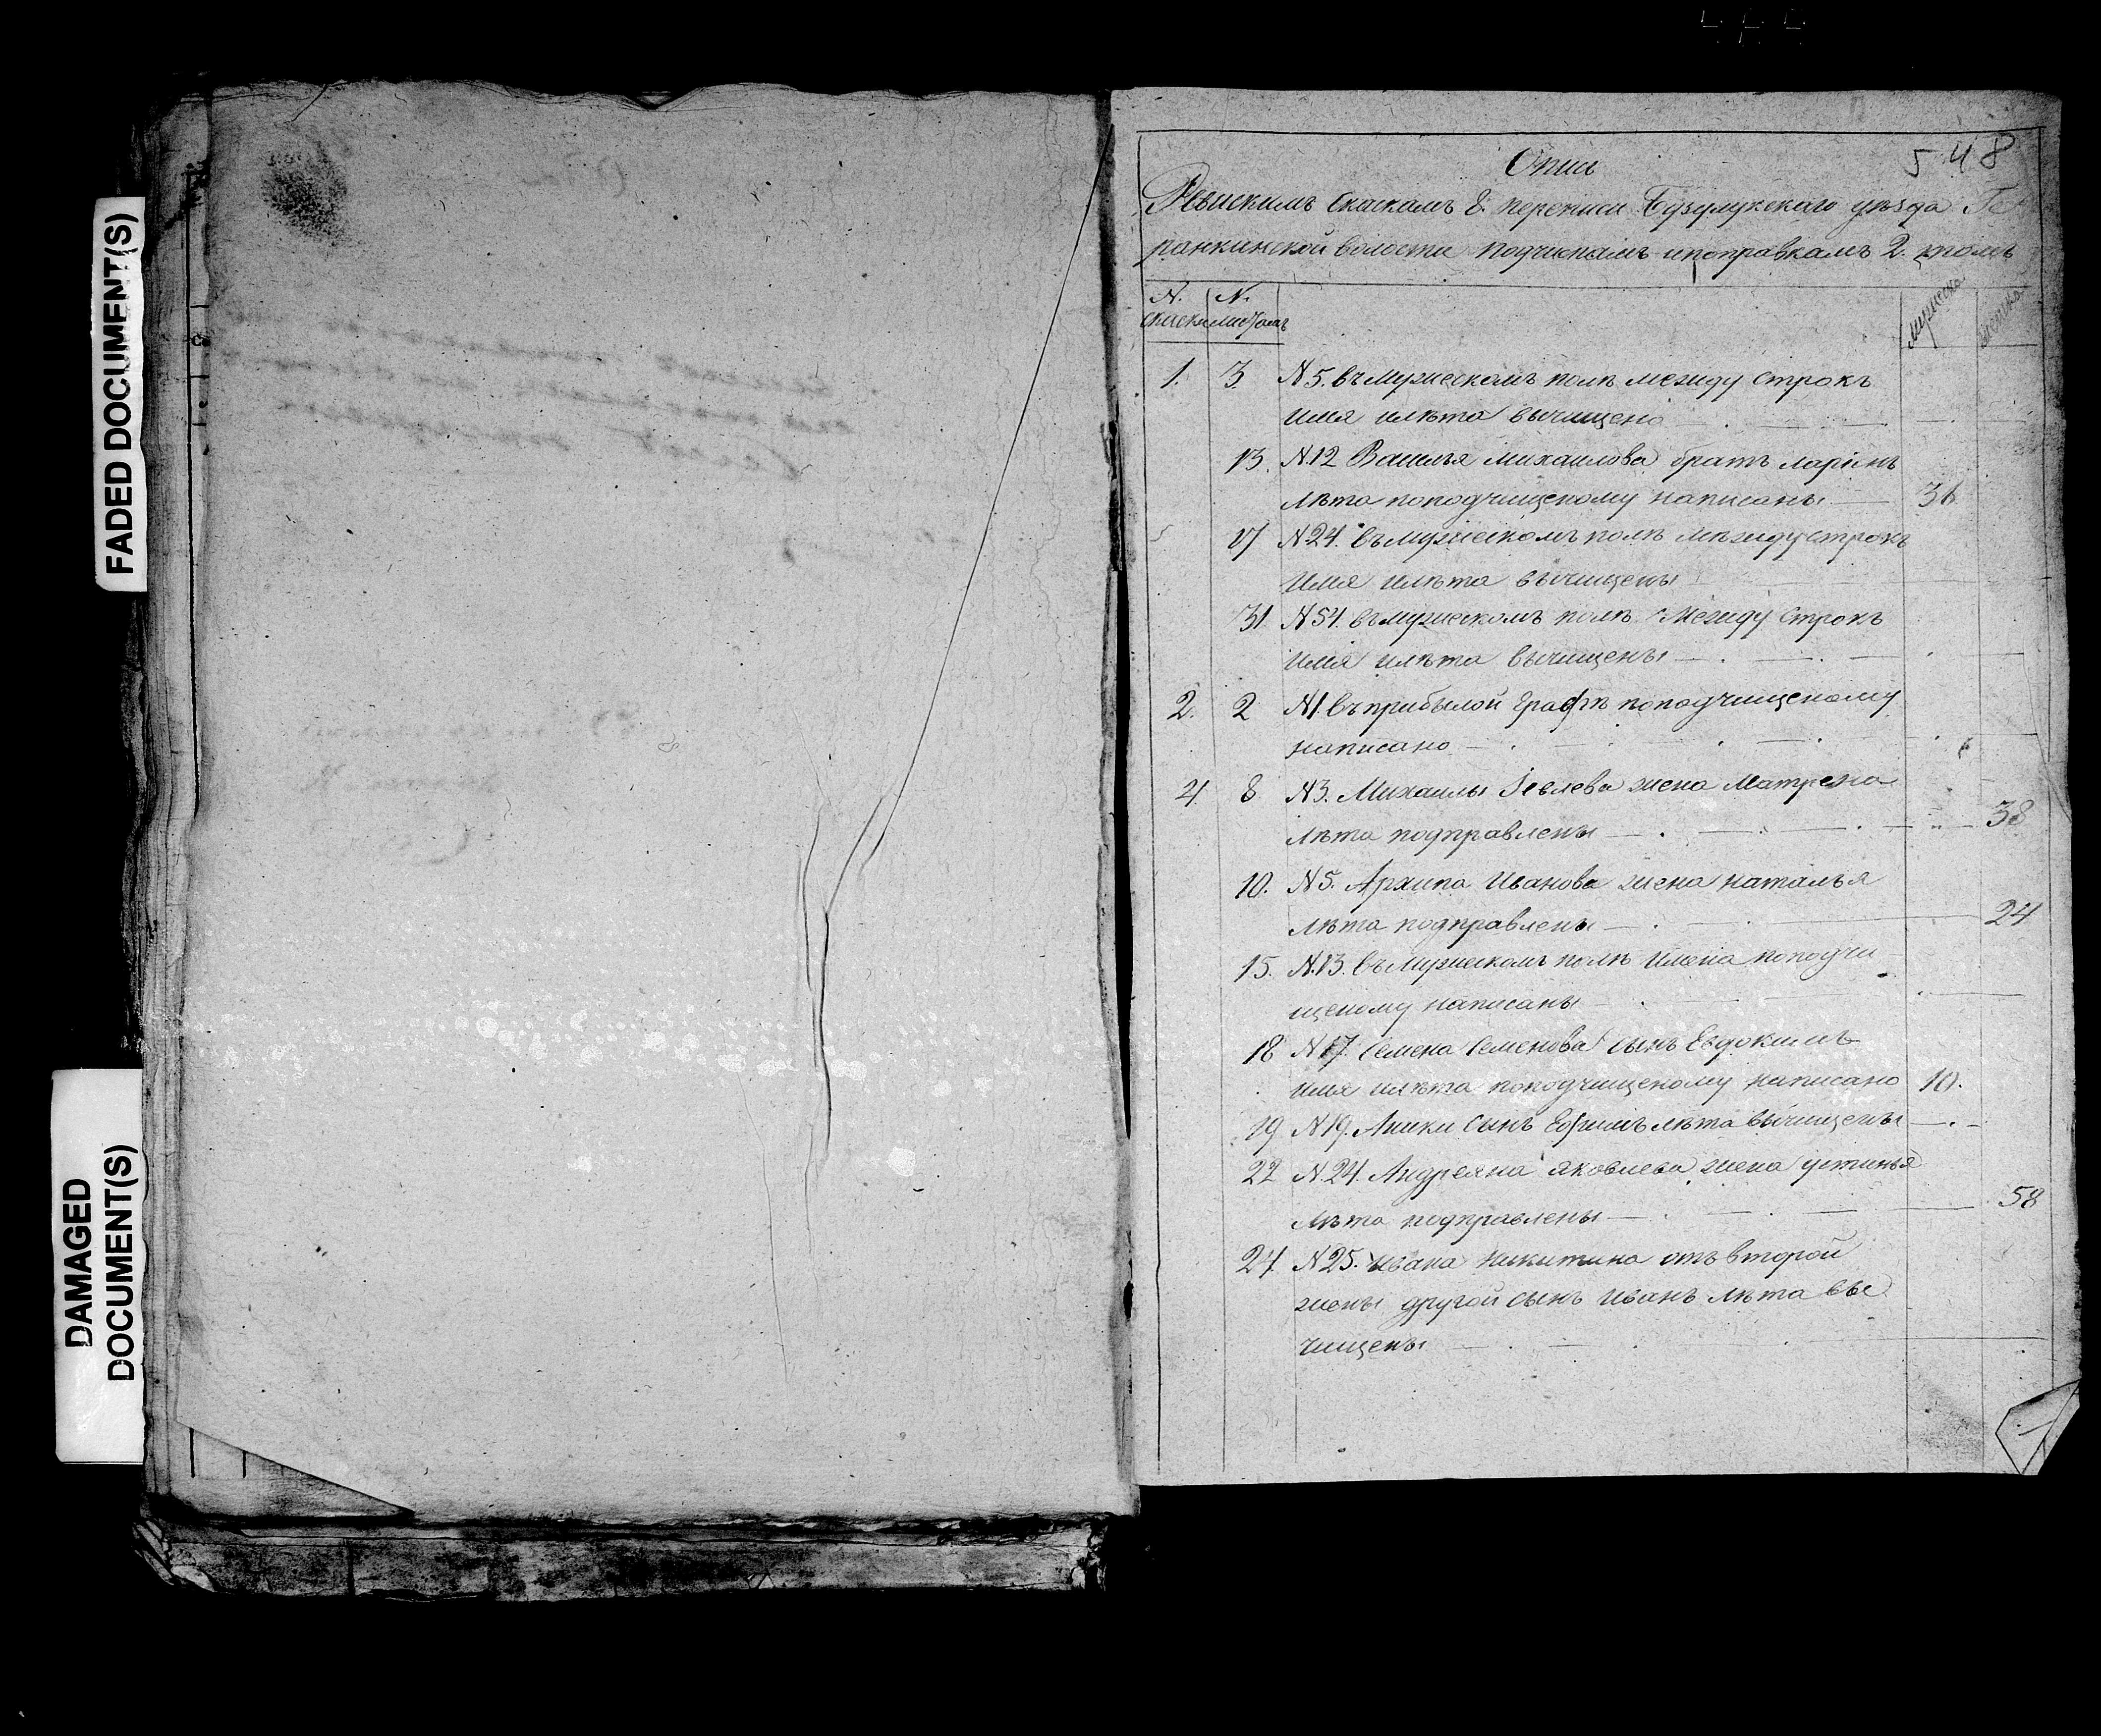 FADED DOCUMENT(S)
DAMAGED
DOCUMENT(S)
Опись 548
Ревискимъ скаскамъ 8. переписи Бузулукскаго уѣзда Ге
ранкинской волости подчисткамъ ипоправкамъ 2.
N. N.
скаски листамъ мужеска женска
1. 3. N5. въ Мужескомъ полѣ между строкъ
имя илѣта вычищено
13. N12 Василья михаилова братъ ларiонъ
лѣта поподчищеному написаны 36
17 N24. въ мужескомъ полѣ между строкъ
имя илѣта вычищены
31. N54. въ мужескомъ полѣ Между строкъ
имя илѣта вычищены
2. 2 N1. въ прибылой графѣ поподчищеному
написано
4. 8 N3. Михаилы Iевлева жена Матрена
лѣта подправлены 38
10. N5. Архипа Иванова жена наталья
лѣта подправлены 24
15. N.13. въ Мужескомъ полѣ имена поподчи
щеному написаны
18 N17. Семена Семенова сынъ Евдокимъ
имя илѣта поподчищеному написано 10.
19 N19. Аники сынъ Ефимъ лѣта вычищены
22 N.24. Андреяна яковлева жена устинья
лѣта подправлены 58
24. N25. Ивана никитина отъ второй
жены другой сынъ иванъ лѣта вы
чищены